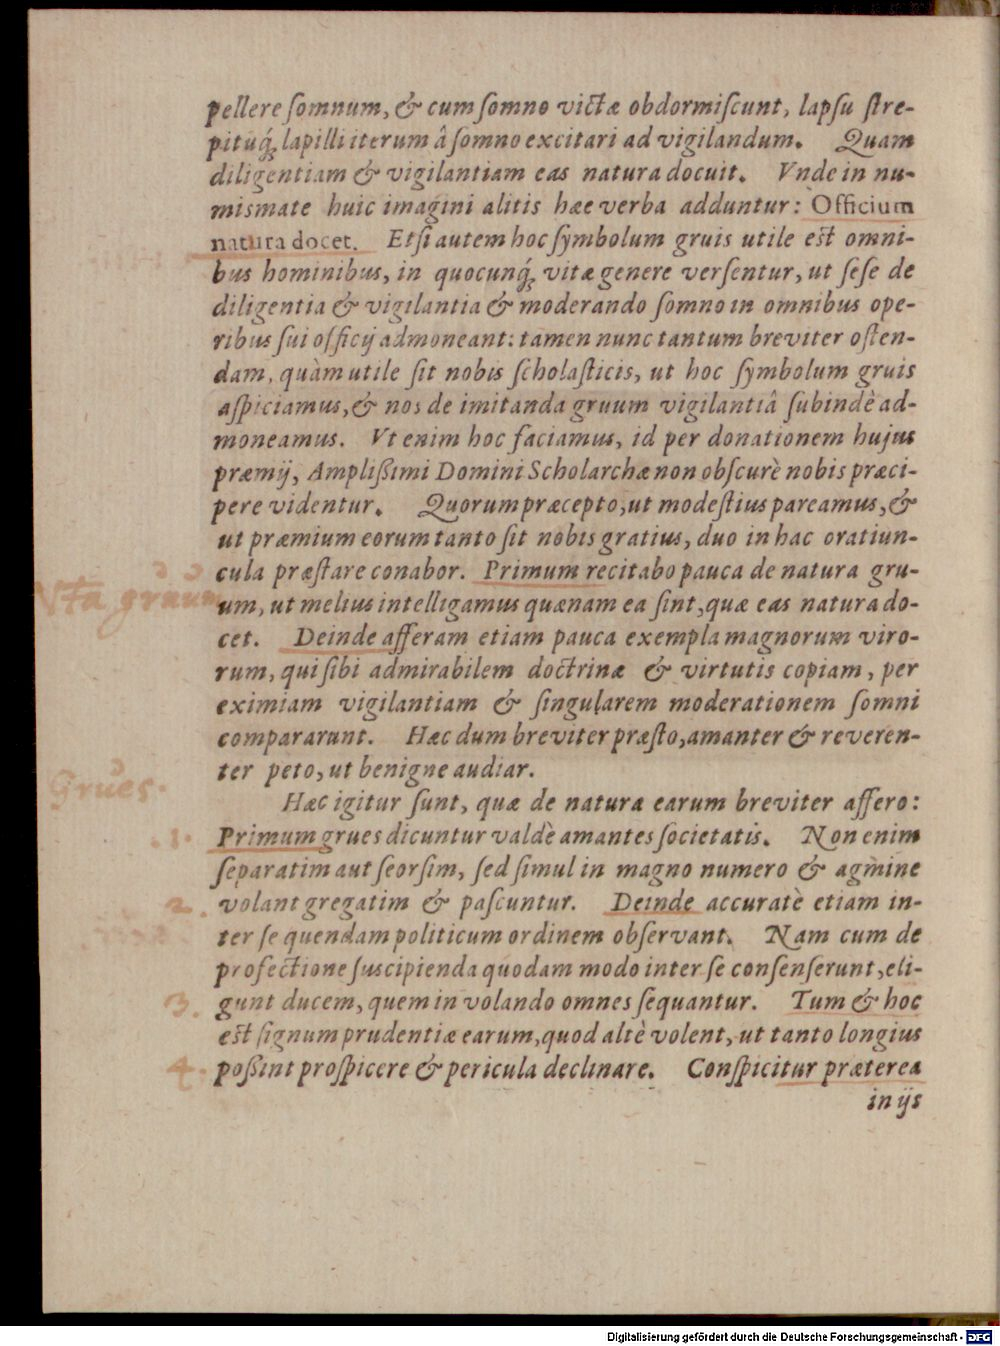 pellere ſomnum, & cum ſomno victæ obdormiſcunt, lapſu ſtre-
pituq́; lapilli iterum â ſomno excitari ad vigilandum. Quam
diligentiam & vigilantiam eas natura docuit. Vnde in nu-
miſmate huic imagini alitis hæ verba adduntur: Officium
natura docet. Etſi autem hoc ſymbolum gruis utile eſt omni-
bus hominibus, in quocunq́; vitæ genere verſentur, ut ſeſe de
diligentia & vigilantia & moderando ſomno in omnibus ope-
ribus ſui officij admoneant: tamen nunc tantum breviter oſten-
dam, quàm utile ſit nobis ſcholaſticis, ut hoc ſymbolum gruis
aſpiciamus, & nos de imitanda gruum vigilantiâ ſubindè ad-
moneamus. Vt enim hoc faciamus, id per donationem hujus
præmij, Ampliſſimi Domini Scholarchæ non obſcurè nobis præci-
pere videntur. Quorum præcepto, ut modeſtius pareamus, &
ut præmium eorum tanto ſit nobis gratius, duo in hac oratiun-
cula præſtare conabor. Primum recitabo pauca de natura gru-
Nta gruum
um, ut melius intelligamus quænam ea ſint, quæ eas natura do-
cet. Deinde afferam etiam pauca exempla magnorum viro-
rum, qui ſibi admirabilem doctrinæ & virtutis copiam, per
eximiam vigilantiam & ſingularem moderationem ſomni
compararunt. Hæc dum breviter præſto, amanter & reveren-
ter peto, ut benigne audiar.
Grues.
Hæc igitur ſunt, quæ de natura earum breviter affero:
.1. Primum grues dicuntur valdè amantes ſocietatis. Non enim
ſeparatim aut ſeorſim, ſed ſimul in magno numero & agmine
2. volant gregatim & paſcuntur. Deinde accuratè etiam in-
ter ſe quendam politicum ordinem obſervant. Nam cum de
profectione ſuscipienda quodam modo inter ſe conſenſerunt, eli-
3. gunt ducem, quem in volando omnes ſequantur. Tum & hoc
eſt ſignum prudentiæ earum, quod altè volent, ut tanto longius
4. poſſint proſpicere & pericula declinare. Conſpicitur præterea
in ijs
Digitalisierung gefördert durch die Deutsche Forschungsgemeinschaft - DFG